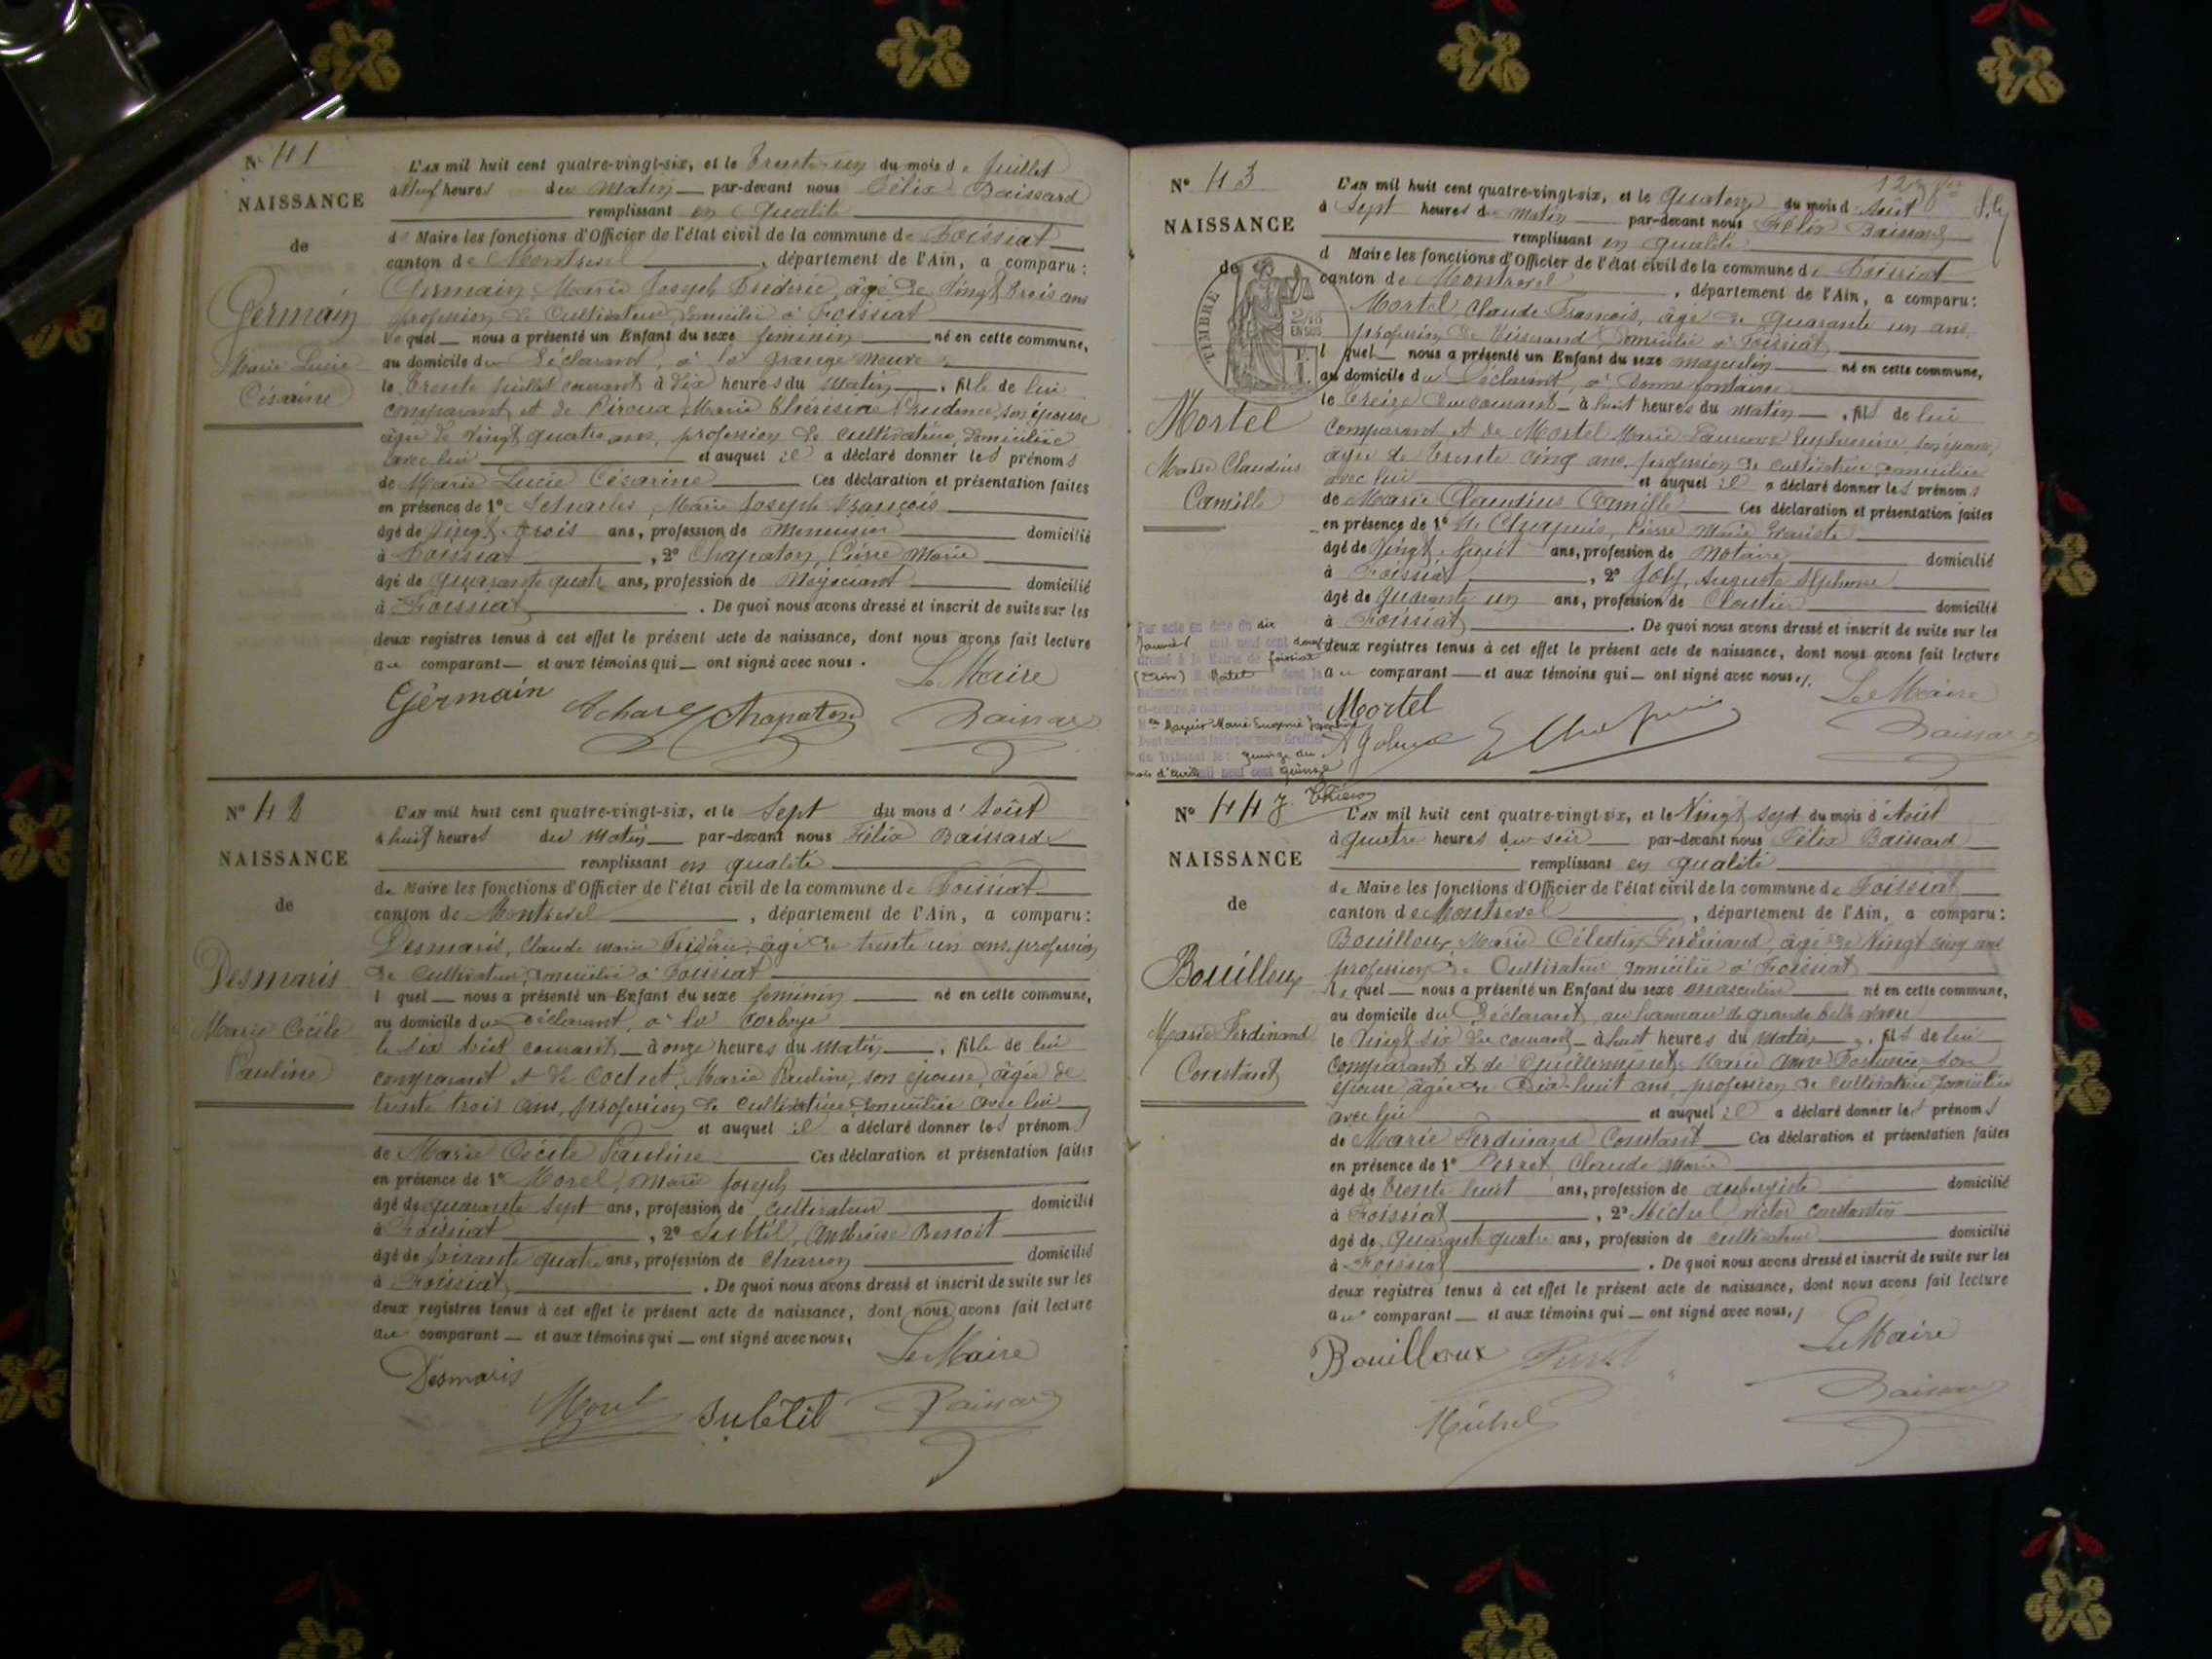 N° 41
NAISSANCE
de
Germain
Marie Lucie
Césarine
L'an mil huit cent quatre-vingt-six, et le trente-un du mois de Juillet
à Neuf heures du Matin par-devant nous Félix Baissard
remplissant en qualité
de Maire les fonctions d'Officier de l'état civil de la commune de Foissiat
canton de Montrevel, département de l'Ain, a comparu :
Germain, Marie Joseph Frédéric, âgé de Vingt trois ans
profession de Cultivateur domicilié à Foissiat
lequel nous a présenté un Enfant du sexe féminin né en cette commune,
au domicile du Déclarant, à la grange neuve
le trente juillet courant à dix heures du Matin, fille de lui
comparant et de Piroux Marie Thérésine Prudence, son épouse
âgée de vingt quatre ans, profession de cultivatrice, domiciliée
avec lui et auquel il a déclaré donner les prénoms
de Marie Lucie Césarine Ces déclaration et présentation faites
en présence de 1° Marie Joseph François
âgé de Vingt trois ans, profession de Menuisier domicilié
à Foissiat, 2° Chapaton, Pierre Marie
âgé de quarante quatre ans, profession de Négociant domicilié
à Foissiat. De quoi nous avons dressé et inscrit de suite sur les
deux registres tenus à cet effet le présent acte de naissance, dont nous avons fait lecture
au comparant et aux témoins qui ont signé avec nous.
Le Maire
Germain Chapaton Baissard
N° 42
NAISSANCE
de
Desmaris
Marie Cécile
Pauline
L'an mil huit cent quatre-vingt-six, et le Sept du mois d'Août
à huit heures du Matin par-devant nous Félix Baissard
remplissant en qualité
de Maire les fonctions d'Officier de l'état civil de la commune de Foissiat
canton de Montrevel, département de l'Ain, a comparu :
Desmaris, Claude Marie Frédéric, âgé de trente un ans, profession
de Cultivateur, domicilié à Foissiat
l quel nous a présenté un Enfant du sexe féminin né en cette commune,
au domicile du Déclarant, à la
le six courant à onze heures du Matin, fille de lui
comparant et de Cochet, Marie Pauline, son épouse, âgée de
trente trois ans, profession de Cultivatrice, domiciliée avec lui
et auquel il a déclaré donner les prénoms
de Marie Cécile Pauline Ces déclaration et présentation faites
en présence de 1° Morel, Marie Joseph
âgé de quarante sept ans, profession de cultivateur domicilié
à Foissiat, 2° Subtil, Ambroise Benoit
âgé de soixante quatre ans, profession de Charron domicilié
à Foissiat. De quoi nous avons dressé et inscrit de suite sur les
deux registres tenus à cet effet le présent acte de naissance, dont nous avons fait lecture
au comparant et aux témoins qui ont signé avec nous,
Le Maire
Desmaris
Morel Subtil Baissard
N° 43
NAISSANCE
de
TIMBRE
2/10
EN SUS
Mortel
Marie Claudius
Camille
L'an mil huit cent quatre-vingt-six, et le Quatorze du mois d'Août
à Sept heures du Matin par-devant nous Félix Baissard
remplissant en qualité
d Maire les fonctions d'Officier de l'état civil de la commune de Foissiat
canton de Montrevel, département de l'Ain, a comparu :
Mortel, Claude François, âgé de quarante un ans,
profession de Tisserand domicilié à Foissiat
l quel nous a présenté un Enfant du sexe masculin né en cette commune,
au domicile du Déclarant, à Bonne fontaine
le treize du courant à huit heures du matin, fils de lui
comparant et de Mortel Marie son épouse,
âgée de trente cinq ans, profession de cultivatrice domiciliée
avec lui et auquel il a déclaré donner les prénoms
de Marie Claudius Camille Ces déclaration et présentation faites
en présence de 1° Chapuis, Pierre Marie
âgé de Vingt huit ans, profession de Notaire domicilié
à Foissiat, 2° Joly, Auguste Alphonse
âgé de quarante un ans, profession de domicilié
à Foissiat. De quoi nous avons dressé et inscrit de suite sur les
deux registres tenus à cet effet le présent acte de naissance, dont nous avons fait lecture
au comparant et aux témoins qui ont signé avec nous,
Le Maire
Mortel
Baissard
Par acte en date du dix
Janvier mil neuf cent
dressé à la Mairie de foissiat
(Ain) Mortel dont la
naissance est constatée dans l'acte
ci-contre, a contracté mariage avec
Marie Eugénie
du Tribunal le quinze du
mois d'avril mil neuf cent quinze
N° 44
NAISSANCE
de
Bouilloux
Marie Ferdinand
Constant
L'an mil huit cent quatre-vingt six, et le Vingt sept du mois d'Août
à quatre heures du soir par-devant nous Félix Baissard
remplissant en qualité
de Maire les fonctions d'Officier de l'état civil de la commune de Foissiat
canton de Montrevel, département de l'Ain, a comparu :
Bouilloux Marie Célestin Ferdinand, âgé de Vingt cinq ans
profession de Cultivateur domicilié à Foissiat
le quel nous a présenté un Enfant du sexe masculin né en cette commune,
au domicile du Déclarant, au hameau de grande
le Vingt six du courant à huit heures du Matin, fils de lui
comparant et de Guillerminet, Marie son
épouse âgée de Dix-huit ans, profession de cultivatrice domiciliée
avec lui et auquel il a déclaré donner les prénoms
de Marie Ferdinand Constant Ces déclaration et présentation faites
en présence de 1° Perret, Claude Marie
âgé de trente huit ans, profession de aubergiste domicilié
à Foissiat, 2° Michel victor constantin
âgé de Quarante quatre ans, profession de cultivateur domicilié
à Foissiat. De quoi nous avons dressé et inscrit de suite sur les
deux registres tenus à cet effet le présent acte de naissance, dont nous avons fait lecture
au comparant et aux témoins qui ont signé avec nous,
Le Maire
Bouilloux Perret
Baissard
Michel